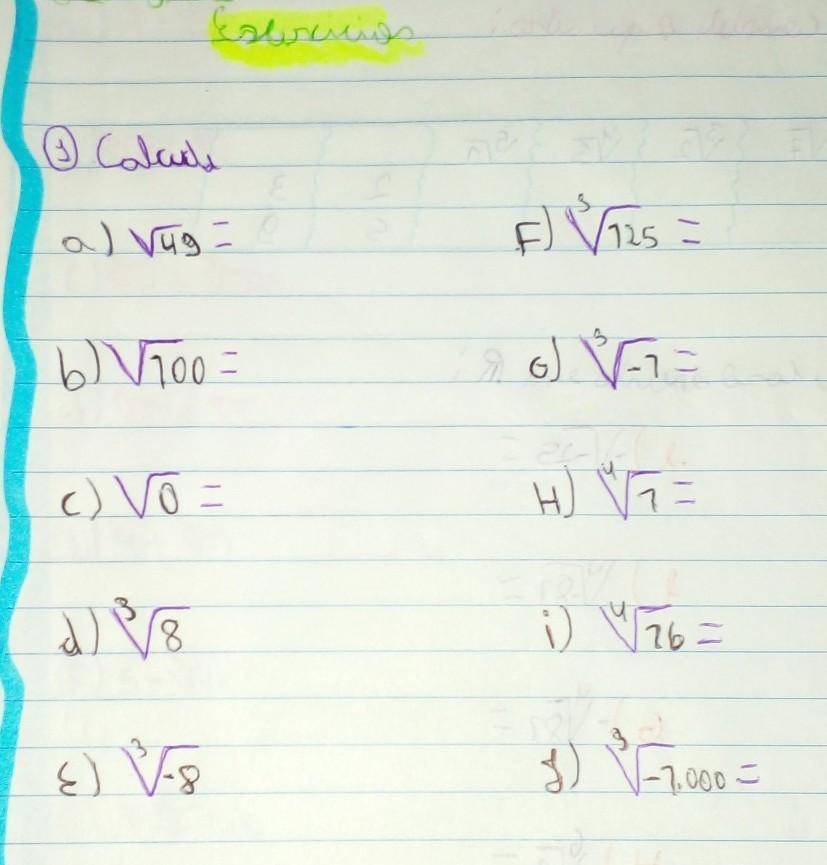 Exercícios
① Calcule
a) √49 =
b) √100 =
c) √0 =
d) ³√8
E) ³√-8
F) ³√125 =
G) ³√-1 =
H) ⁴√1 =
i) ⁴√16 =
j) ³√-1.000 =